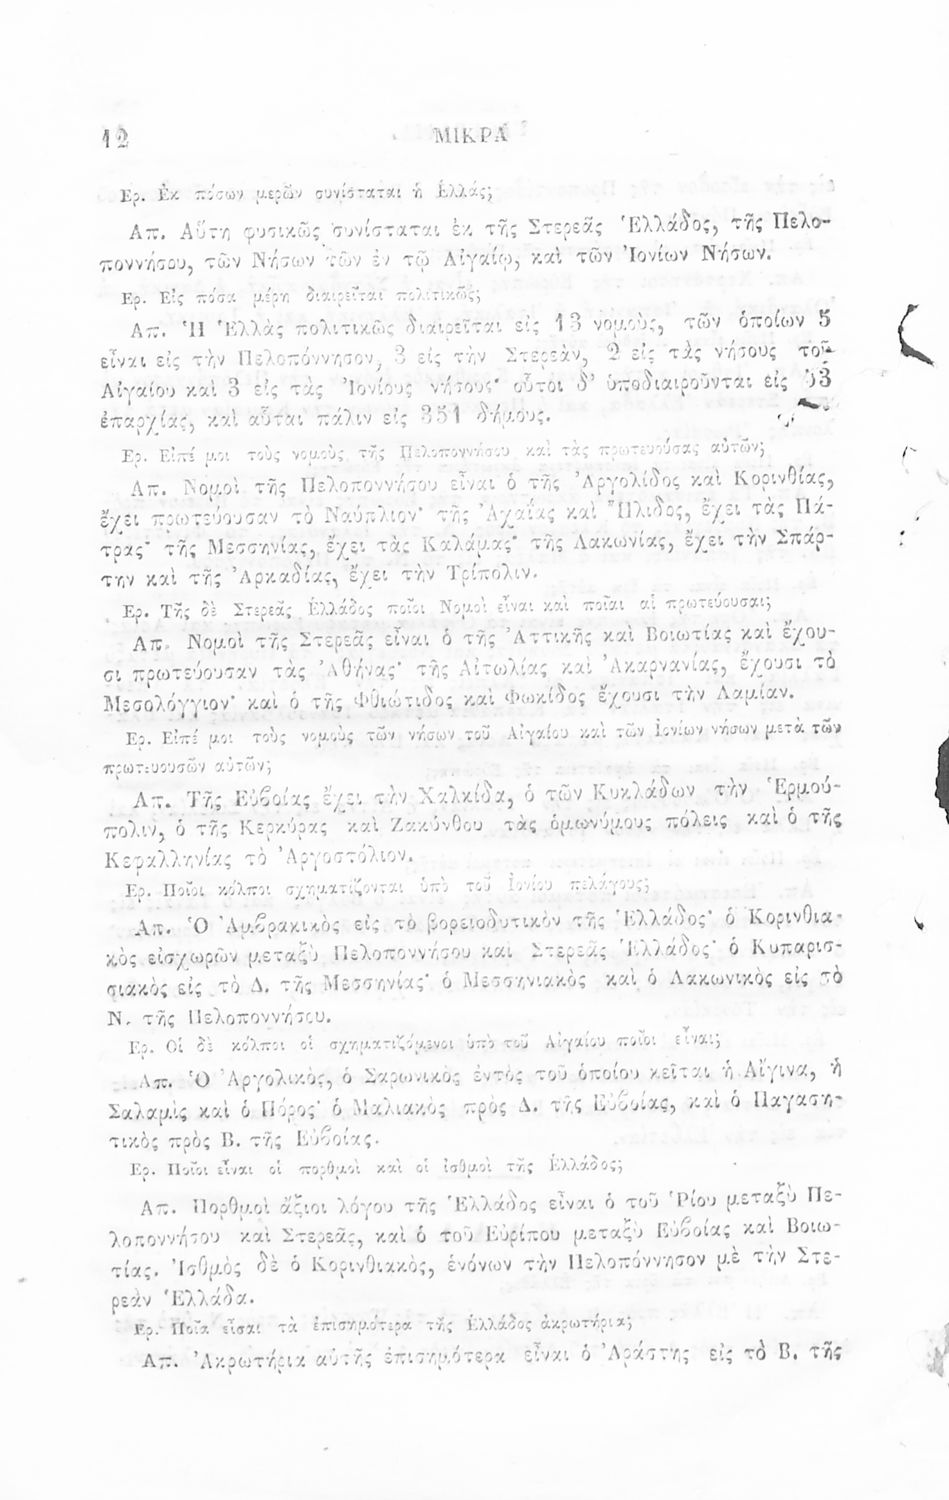 12 ΜΙΚΡΑ
Ερ. Ἐκ πόσων μερῶν συνίσταται ἡ Ἑλλάς;
Απ. Αὕτη φυσικῶς συνίσταται ἐκ τῆς Στερεᾶς Ἑλλάδος, τῆς Πελο-
ποννήσου, τῶν Νήσων τῶν ἐν τῷ Αἰγαίῳ, καὶ τῶν Ἰονίων Νήσων.
Ερ. Εἰς πόσα μέρη διαιρεῖται πολιτικῶς;
Απ. Ἡ Ἑλλὰς πολιτικῶς διαιρεῖται εἰς 13 νομοὺς, τῶν ὁποίων 5
εἶναι εἰς τὴν Πελοπόννησον, 3 εἰς τὴν Στερεὰν, 2 εἰς τὰς νήσους τοῦ
Αἰγαίου καὶ 3 εἰς τὰς Ἰονίους νήσους· οὗτοι δ' ὑποδιαιροῦνται εἰς
ἐπαρχίας, καὶ αὗται πάλιν εἰς 351 δήμους.
Ερ. Εἰπέ μοι τοὺς νομοὺς τῆς Πελοποννήσου καὶ τὰς πρωτευούσας αὐτῶν;
Απ. Νομοὶ τῆς Πελοποννήσου εἶναι ὁ τῆς Ἀργολίδος καὶ Κορινθίας,
ἔχει πρωτεύουσαν τὸ Ναύπλιον· τῆς Ἀχαΐας καὶ Ἤλιδος, ἔχει τὰς Πά-
τρας· τῆς Μεσσηνίας, ἔχει τὰς Καλάμας· τῆς Λακωνίας, ἔχει τὴν Σπάρ-
την καὶ τῆς Ἀρκαδίας, ἔχει τὴν Τρίπολιν.
Ερ. Τῆς δὲ Στερεᾶς Ἑλλάδος ποῖοι Νομοὶ εἶναι καὶ ποῖαι αἱ πρωτεύουσαι;
Απ. Νομοὶ τῆς Στερεᾶς εἶναι ὁ τῆς Ἀττικῆς καὶ Βοιωτίας καὶ ἔχου-
σι πρωτεύουσαν τὰς Ἀθήνας· τῆς Αἰτωλίας καὶ Ἀκαρνανίας, ἔχουσι τὸ
Μεσολόγγιον· καὶ ὁ τῆς Φθιώτιδος καὶ Φωκίδος ἔχουσι τὴν Λαμίαν.
Ερ. Εἰπέ μοι τοὺς νομοὺς τῶν νήσων τοῦ Αἰγαίου καὶ τῶν Ἰονίων νήσων μετὰ τῶν
πρωτευουσῶν αὐτῶν;
Απ. Τῆς Εὐβοίας ἔχει τὴν Χαλκίδα, ὁ τῶν Κυκλάδων τὴν Ἑρμού-
πολιν, ὁ τῆς Κερκύρας καὶ Ζακύνθου τὰς ὁμωνύμους πόλεις καὶ ὁ τῆς
Κεφαλληνίας τὸ Ἀργοστόλιον.
Ερ. Ποῖοι κόλποι σχηματίζονται ὑπὸ τοῦ Ἰονίου πελάγους;
Απ. Ὁ Ἀμβρακικὸς εἰς τὸ βορειοδυτικὸν τῆς Ἑλλάδος· ὁ Κορινθια-
κὸς εἰσχωρῶν μεταξὺ Πελοποννήσου καὶ Στερεᾶς Ἑλλάδος· ὁ Κυπαρισ-
σιακὸς εἰς τὸ Δ. τῆς Μεσσηνίας· ὁ Μεσσηνιακὸς καὶ ὁ Λακωνικὸς εἰς τὸ
Ν. τῆς Πελοποννήσου.
Ερ. Οἱ δὲ κόλποι οἱ σχηματιζόμενοι ὑπὸ τοῦ Αἰγαίου ποῖοι εἶναι;
Απ. Ὁ Ἀργολικὸς, ὁ Σαρωνικὸς ἐντὸς τοῦ ὁποίου κεῖται ἡ Αἴγινα, ἡ
Σαλαμὶς καὶ ὁ Πόρος· ὁ Μαλιακὸς πρὸς Δ. τῆς Εὐβοίας, καὶ ὁ Παγαση-
τικὸς πρὸς Β. τῆς Εὐβοίας.
Ερ. Ποῖοι εἶναι οἱ πορθμοὶ καὶ οἱ ἰσθμοὶ τῆς Ἑλλάδος;
Απ. Πορθμοὶ ἄξιοι λόγου τῆς Ἑλλάδος εἶναι ὁ τοῦ Ῥίου μεταξὺ Πε-
λοποννήσου καὶ Στερεᾶς, καὶ ὁ τοῦ Εὐρίπου μεταξὺ Εὐβοίας καὶ Βοιω-
τίας. Ἰσθμὸς δὲ ὁ Κορινθιακὸς, ἑνόνων τὴν Πελοπόννησον μὲ τὴν Στε-
ρεὰν Ἑλλάδα.
Ερ. Ποῖα εἶσαι τὰ ἐπισημότερα τῆς Ἑλλάδος ἀκρωτήρια;
Απ. Ἀκρωτήρια αὐτῆς ἐπισημότερα εἶναι ὁ Ἀράστης εἰς τὸ Β. τῆς